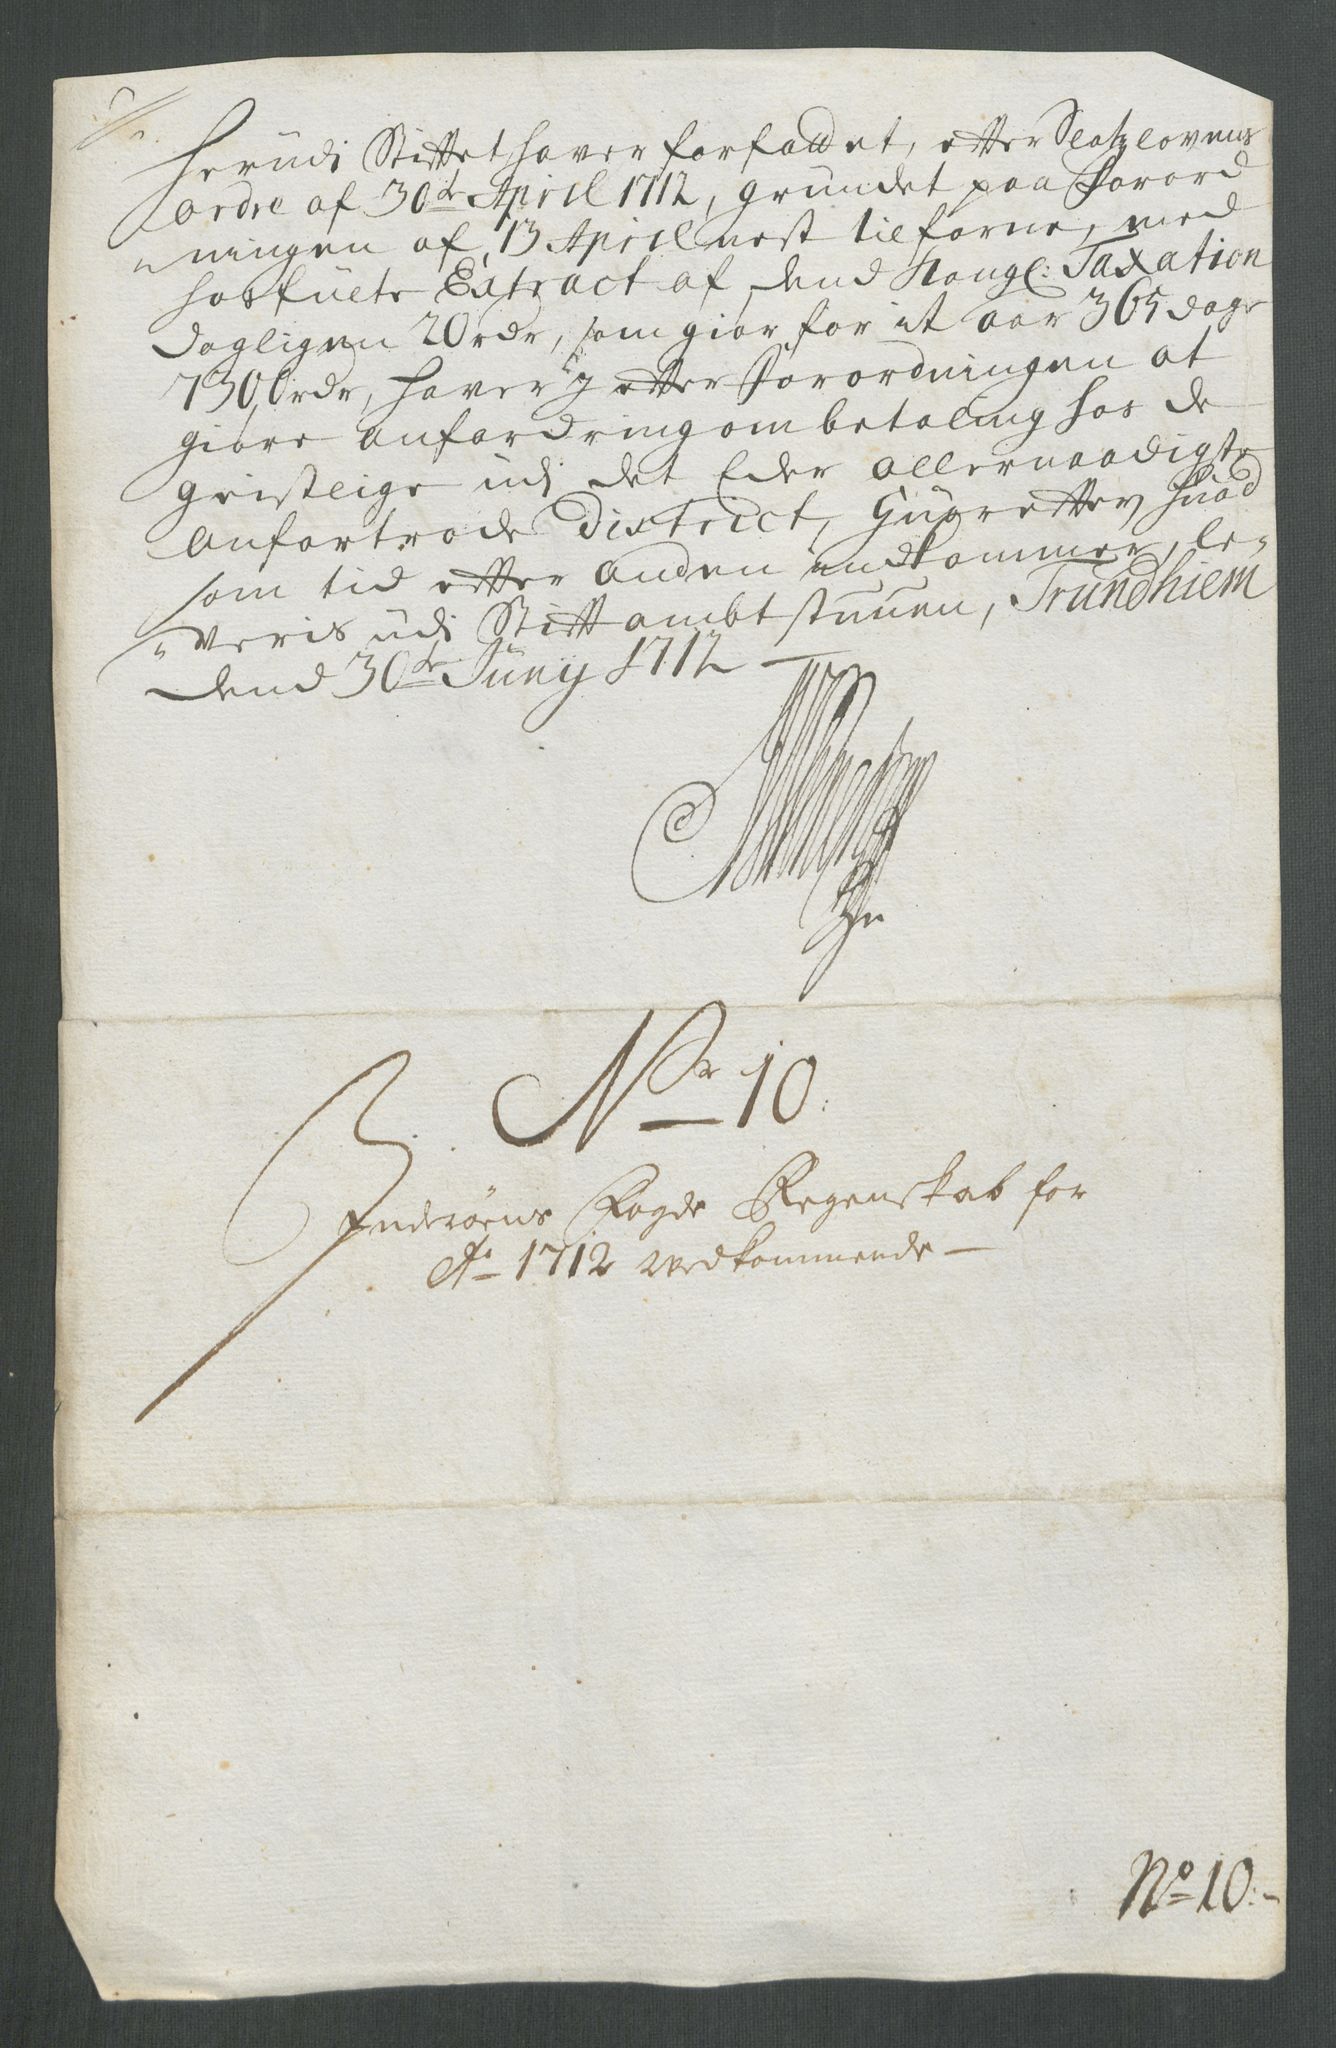 herudi Stiftet haver forfattet, efter Slotzlovens
ordre af 30de April 1712, grundet paa Forord
"ningen af 13 April nest tilforne, med
hosfuete Extract af dend Kongl: Taxation
dagligen 20 rdr, som giør for it aar 365 dage
7300 rdr, haver i efter Forordningen at
giøre anfordring om betaling hos de
geistlige udi det Eder allernaadigste
anfortrode District, huor efter huad
som tid efter anden indkommer, le"
"veris udi Stiftambtstuuen, Trundhiem
dend 30de Juny 1712
Nr 10.
Inderøens Fogde Regenskab for
Ao 1712 vedkommende
No 10.